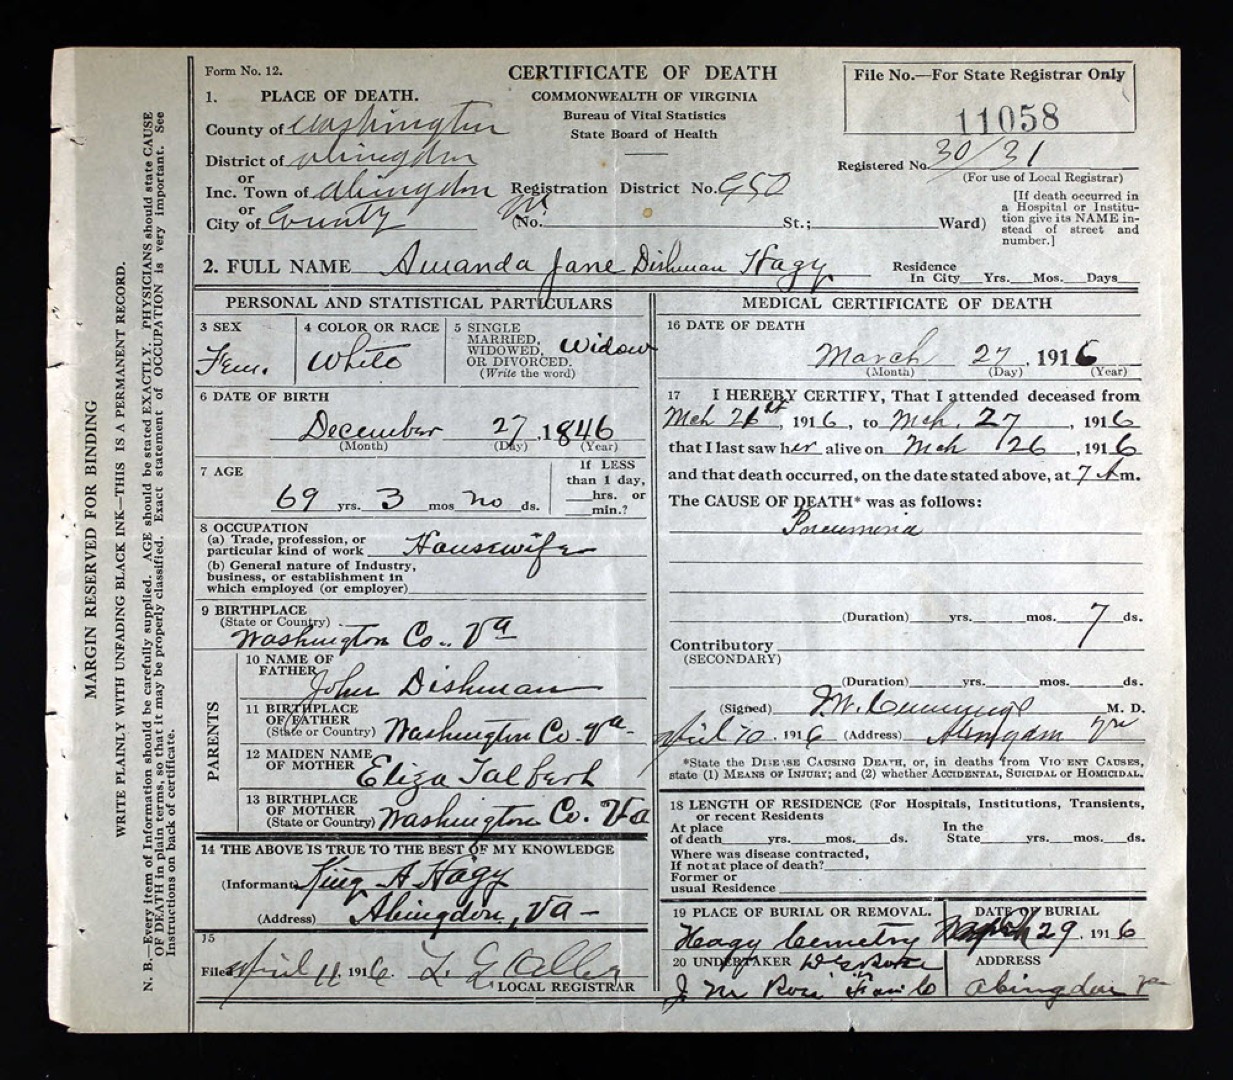 Form No. 12.
CERTIFICATE OF DEATH
COMMONWEALTH OF VIRGINIA
Bureau of Vital Statistics
State Board of Health
File No.—For State Registrar Only
11058
Registered No. 30/31
(For use of Local Registrar)
[If death occurred in a Hospital or Institution give its NAME instead of street and number.]
1. PLACE OF DEATH.
County of Washington
District of Abingdon
or
Inc. Town of Abingdon Registration District No. 950
or
City of County (No. St.; Ward)
2. FULL NAME Amanda Jane Dishman Hagy
Residence In City Yrs. Mos. Days
PERSONAL AND STATISTICAL PARTICULARS
3 SEX
Fem.
4 COLOR OR RACE
White
5 SINGLE MARRIED, WIDOWED, OR DIVORCED. (Write the word)
Widow
6 DATE OF BIRTH
December 27, 1846
(Month) (Day) (Year)
7 AGE
69 yrs. 3 mos no ds.
If LESS than 1 day, hrs. or min.?
8 OCCUPATION
(a) Trade, profession, or particular kind of work Housewife
(b) General nature of Industry, business, or establishment in which employed (or employer)
9 BIRTHPLACE
(State or Country)
Washington Co.. Va
PARENTS
10 NAME OF FATHER
John Dishman
11 BIRTHPLACE OF FATHER (State or Country) Washington Co. Va-
12 MAIDEN NAME OF MOTHER Eliza Talbert
13 BIRTHPLACE OF MOTHER (State or Country) Washington Co. Va
14 THE ABOVE IS TRUE TO THE BEST OF MY KNOWLEDGE
(Informant) King A Hagy
(Address) Abingdon, Va -
15
Filed April 11, 1916. L. G.
LOCAL REGISTRAR
MEDICAL CERTIFICATE OF DEATH
16 DATE OF DEATH
March 27, 1916
(Month) (Day) (Year)
17 I HEREBY CERTIFY, That I attended deceased from
Mch 21st, 1916, to Mch. 27, 1916
that I last saw her alive on Mch 26, 1916
and that death occurred, on the date stated above, at 7 Am.
The CAUSE OF DEATH* was as follows:
Pneumonia
(Duration) yrs. mos. 7 ds.
Contributory
(SECONDARY)
(Duration) yrs. mos. ds.
(Signed) Cummings M. D.
April 10. 1916 (Address) Abingdon Va
*State the DISEASE CAUSING DEATH, or, in deaths from VIOLENT CAUSES,
state (1) MEANS OF INJURY; and (2) whether ACCIDENTAL, SUICIDAL OR HOMICIDAL.
18 LENGTH OF RESIDENCE (For Hospitals, Institutions, Transients,
or recent Residents
At place of death yrs. mos. ds. In the State yrs. mos. ds.
Where was disease contracted,
If not at place of death?
Former or
usual Residence
19 PLACE OF BURIAL OR REMOVAL. DATE OF BURIAL
Hagy Cemetry March 29, 1916
20 UNDERTAKER ADDRESS
J M Abingdon Va
MARGIN RESERVED FOR BINDING
WRITE PLAINLY WITH UNFADING BLACK INK—THIS IS A PERMANENT RECORD.
N. B.—Every item of Information should be carefully supplied. AGE should be stated EXACTLY. PHYSICIANS should state CAUSE
OF DEATH in plain terms, so that it may be properly classified. Exact statement of OCCUPATION is very important. See
instructions on back of certificate.